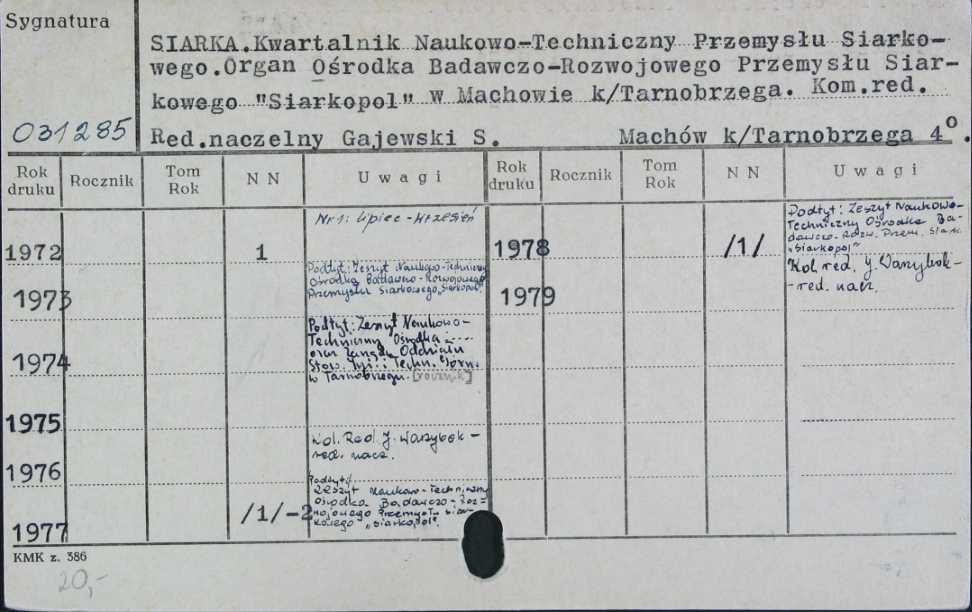 Sygnatura
SIARKA.Kwartalnik Naukowo-Techniczny Przemysłu Siarko-
wego.Organ Ośrodka Badawczo-Rozwojowego Przemysłu Siar-
kowego "Siarkopol" w Machowie k/Tarnobrzega. Kom.red.
031285
Red.naczelny Gajewski S. Machów k/Tarnobrzega 4°.
Rok druku Rocznik Tom Rok N N Uwagi Rok druku Rocznik Tom Rok N N Uwagi
Nr 1: lipiec - wrzesień
1972 1
Podtyt: Zeszyt Naukowo-Techniczny
Ośrodka Badawczo-Rozwojowego
Przemysłu Siarkowego "Siarkopol"
1973
Podtyt: Zeszyt Naukowo-
Techniczny Ośrodka .....
oraz Zarządu Oddziału
Stow. Inż. i Techn. Górn.
w Tarnobrzegu. [rocznik]
1974
1975
Kol. Red. J. Warzybok -
red. nacz.
1976
Podtyt:
Zeszyt Naukowo-Techniczny
Ośrodka Badawczo-Roz=
wojowego Przemysłu Siar-
kowego "Siarkopol"
1977 /1/-2
Podtyt: Zeszyt Naukowo-
Techniczny Ośrodka Ba-
dawczo-Rozw. Przem. Siark.
"Siarkopol"
1978 /1/
Kol. red. J. Warzybok-
-red. nacz.
1979
KMK z. 386
20,-